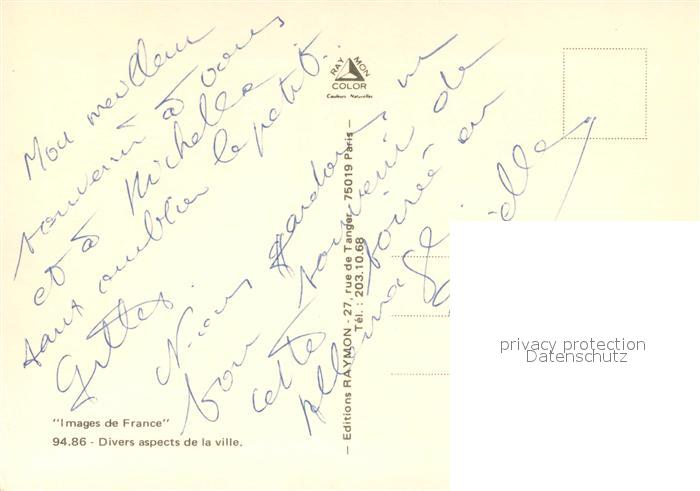 Mon meilleur
souvenir à vous
et à Michelle
sans oublier le petit
Nous gardons un
bon souvenir de
cette soirée en
RAYMON
COLOR
Couleurs Naturelles
— Editions RAYMON - 27, rue de Tanger - 75019 Paris —
Tél. : 203.10.68
"Images de France"
94.86 - Divers aspects de la ville.
privacy protection
Datenschutz